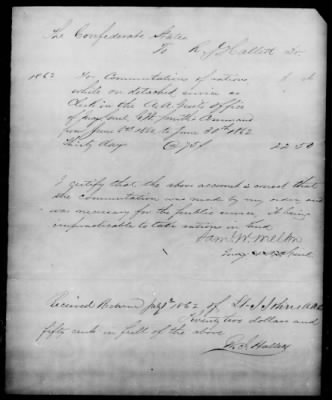 The Confederate States
To R. J. Hallett Dr.
1862 For Commutation of rations $ ¢
while on detached service as
Clerk in the A. A. Genl's Office
of Maj Genl G W Smith's Command
from June 1st 1862 to June 30th 1862
Thirty days @ 75¢ 22 50
I certify that the above account is correct that
the commutation was made by my order, and
was necessary for the public service, it being
impracticable to take rations in kind
Sam W. Melton
Maj
Received Richmond July 1862 of
Twenty two dollars and
fifty cents in full of the above
R. J. Hallett